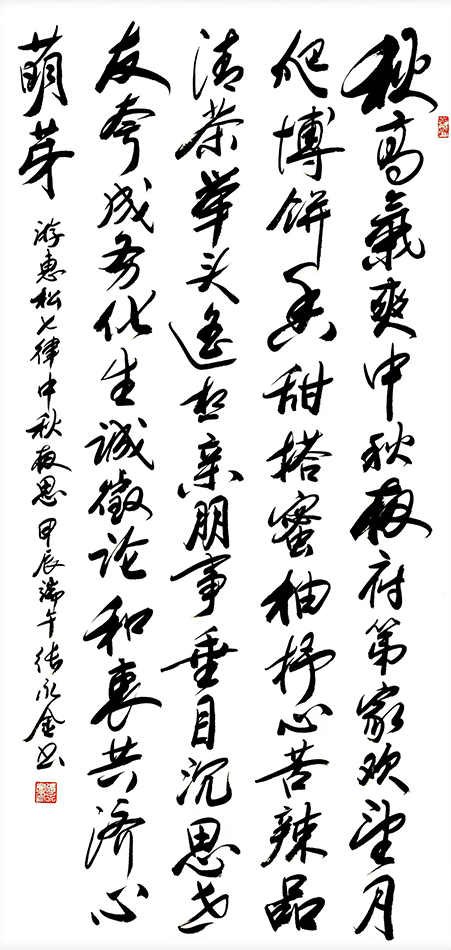 秋高氣爽中秋夜府第家欢望月
爬博饼香甜搭蜜柚抒心苦辣品
清茶举头遥想亲朋事垂目沉思世
友夸成务化生诚徵论和衷共济心
萌芽
游惠松七律中秋夜思甲辰端午张永金书